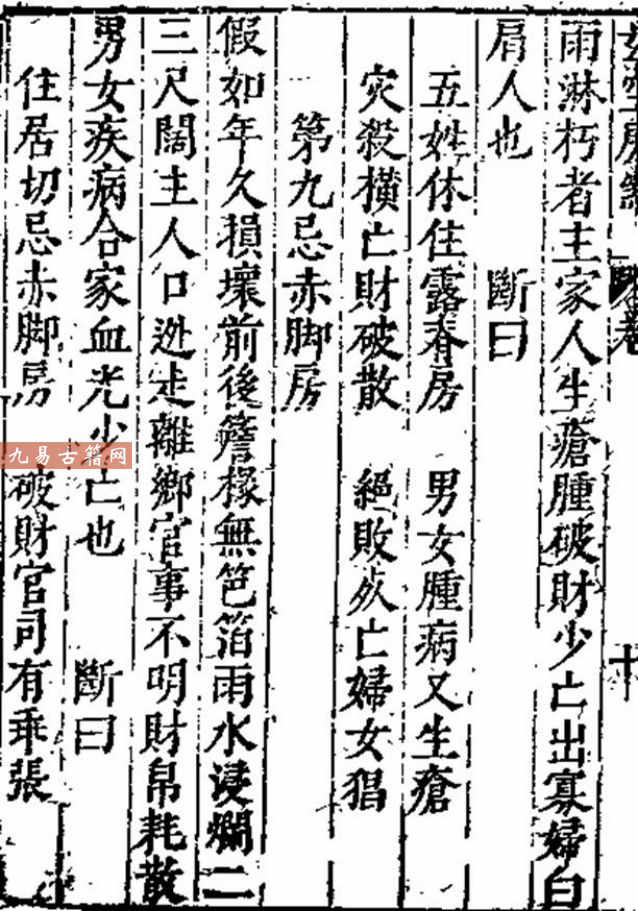 雨淋朽者主家人生瘡腫破財少亡出寡婦白
肩人也　斷曰
五姓休住露脊房　男女腫病又生瘡
灾殺橫亡財破散　絕敗灰亡婦女猖
第九忌赤脚房
假如年久損壞前後簷椽無笆箔雨水浸爛二
三尺闊主人口迯走離鄉官事不明財帛耗散
男女疾病合家血光少亡也　斷曰
住居切忌赤脚房　破財官司有乖張
十
九易古籍网